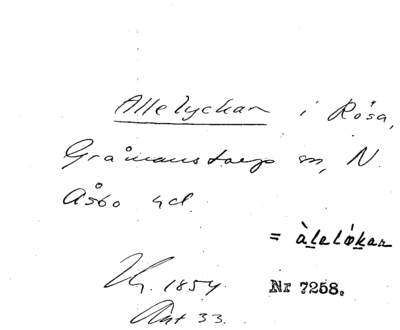 Allelyckan i Rösa,
Gråmanstorps sn, N.
Åsbo hd.
= àlelókan
Hy. 1854
Nr 7258.
Ant 33.